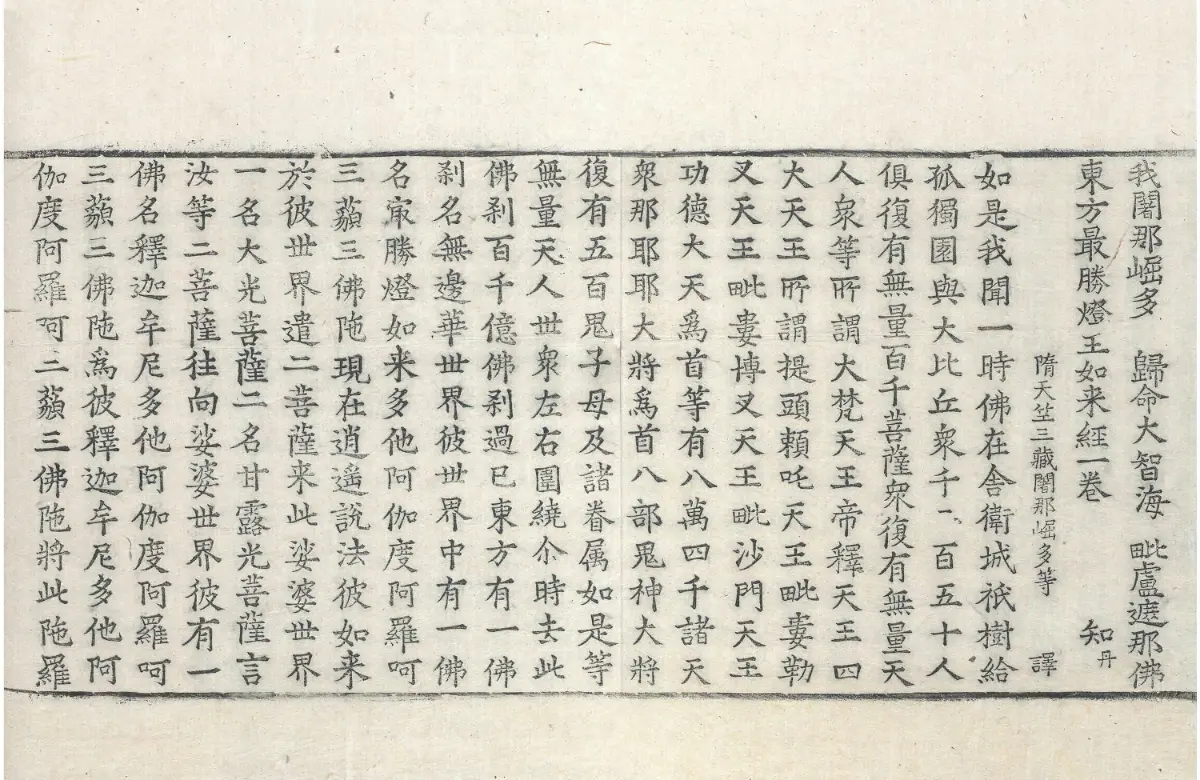 我闍那崛多　歸命大智海　毗盧遮那佛
東方最勝燈王如来經一卷　知丹
隋天竺三藏闍那崛多等　譯
如是我聞一時佛在舍衛城祇樹給
孤獨園與大比丘衆千二百五十人
俱復有無量百千菩薩衆復有無量天
人衆等所謂大梵天王帝釋天王四
大天王所謂提頭頼吒天王毗婁勒
叉天王毗婁博叉天王毗沙門天王
功德大天爲首等有八萬四千諸天
衆那耶耶大將爲首八部鬼神大將
復有五百鬼子母及諸眷属如是等
無量天人世衆左右圍繞尒時去此
佛刹百千億佛刹過已東方有一佛
刹名無邊華世界彼世界中有一佛
名冣勝燈如来多他阿伽度阿羅呵
三藐三佛陁現在逍遥說法彼如来
於彼世界遣二菩薩来此娑婆世界
一名大光菩薩二名甘露光菩薩言
汝等二菩薩往向娑婆世界彼有一
佛名釋迦牟尼多他阿伽度阿羅呵
三藐三佛陁爲彼釋迦牟尼多他阿
伽度阿羅呵三藐三佛陁將此陁羅